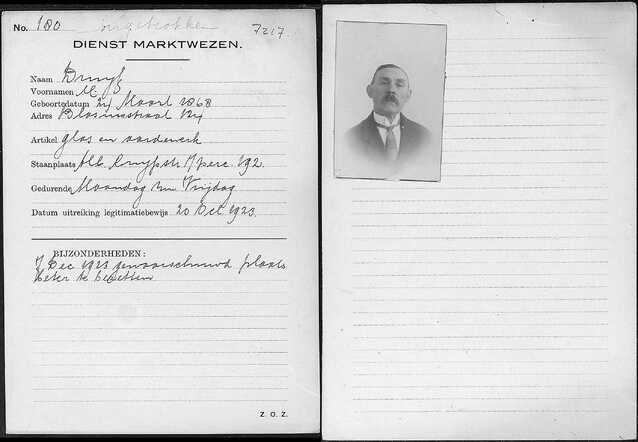 No. 180 ingetrokken 7217
DIENST MARKTWEZEN.
Naam Druyf
Voornamen M.
Geboortedatum 24 Maart 1868
Adres Blasiusstraat 124
Artikel glas en aardewerk
Staanplaats Alb. Cuypstr. perc. 192.
Gedurende Maandag t/m Vrijdag
Datum uitreiking legitimatiebewijs 20 Oct. 1923.
BIJZONDERHEDEN:
7 Dec 1923 gewaarschuwd plaats
beter te bezetten
Z. O. Z.